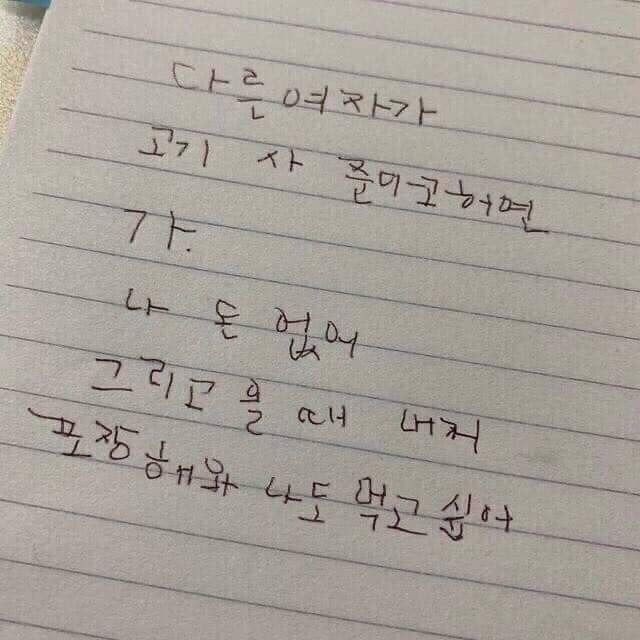 다른여자가
고기 사 준다고하면
가.
나 돈 없어
그리고 올 때 내꺼
포장해와 나도 먹고싶어